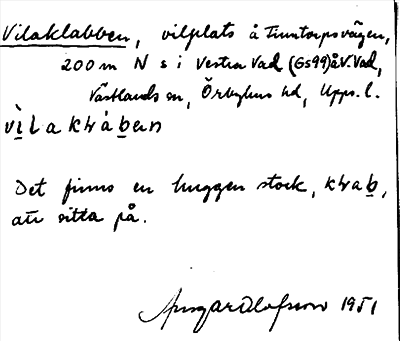 Vilaklabben, vilplats å Finntorpsvägen,
200 m N s i Vestra Vad (Gs 99) å V. Vad,
Västlands sn, Örbyhus hd, Upps. l.
vìlakłàben
Det finns en huggen stock, kłab,
att sitta på.
Ansgar Olofsson 1951